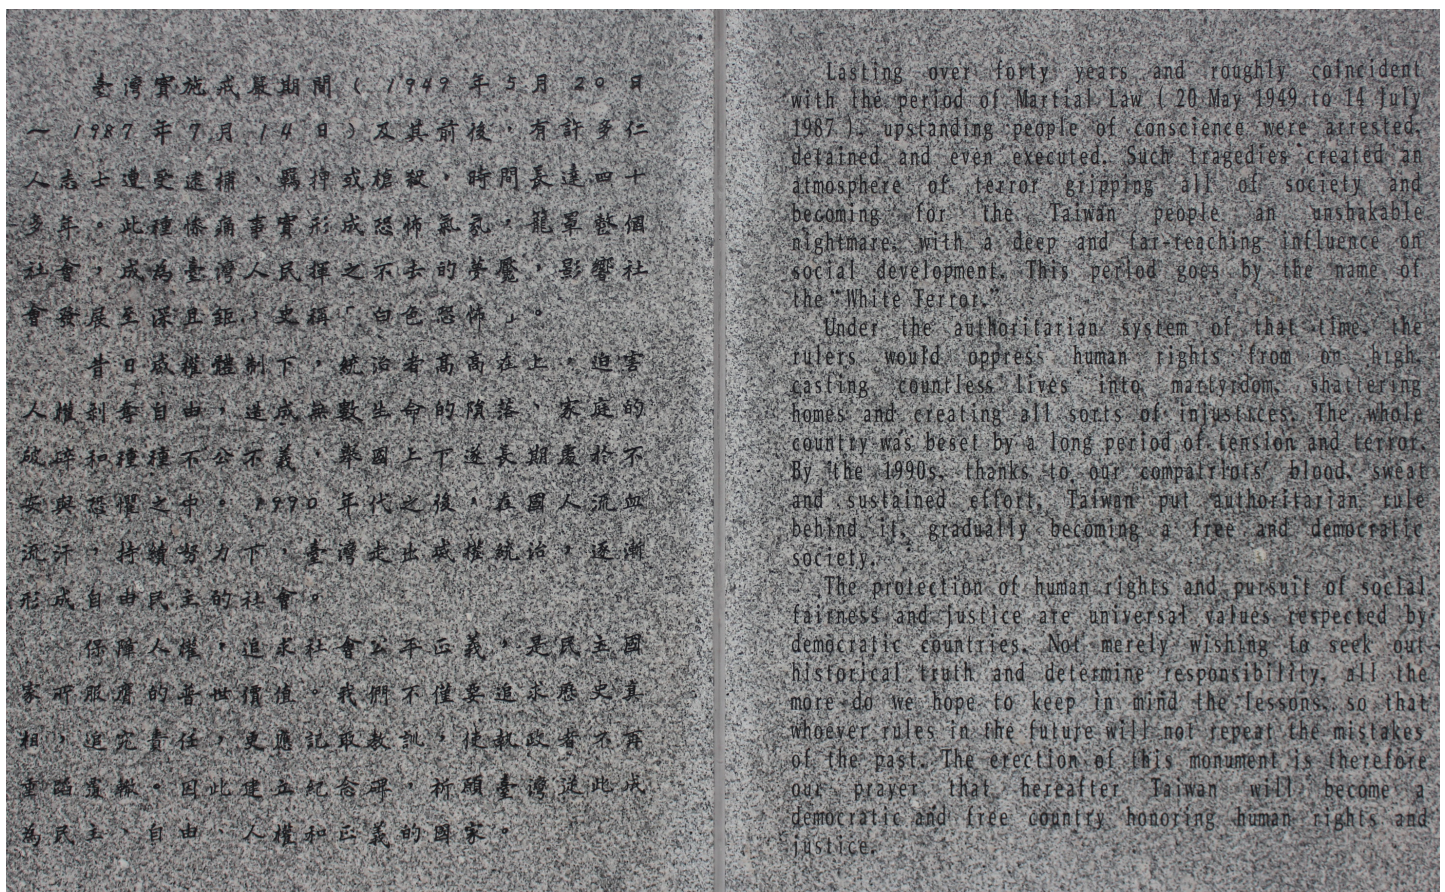 臺灣實施戒嚴期間(1949年5月20日
~1987年7月14日)及其前後,有許多仁
人志士遭受逮捕、羈押或槍殺,時間長達四十
多年。此種慘痛事實形成恐怖氣氛,籠罩整個
社會,成為臺灣人民揮之不去的夢魘,影響社
會發展至深且鉅,史稱「白色恐怖」。
昔日威權體制下,統治者高高在上,迫害
人權剝奪自由,造成無數生命的隕落、家庭的
破碎和種種不公不義,舉國上下遂長期處於不
安與恐懼之中。1990年代之後,在國人流血
流汗,持續努力下,臺灣走出威權統治,逐漸
形成自由民主的社會。
保障人權,追求社會公平正義,是民主國
家所服膺的普世價值。我們不僅要追求歷史真
相,追究責任,更應記取教訓,使執政者不再
重蹈覆轍。因此建立紀念碑,祈願臺灣從此成
為民主、自由、人權和正義的國家。
Lasting over forty years and roughly coincident
with the period of Martial Law ( 20 May 1949 to 14 July
1987 ), upstanding people of conscience were arrested,
detained and even executed. Such tragedies created an
atmosphere of terror gripping all of society and
becoming for the Taiwan people an unshakable
nightmare, with a deep and far-reaching influence on
social development. This period goes by the name of
the "White Terror."
Under the authoritarian system of that time, the
rulers would oppress human rights from on high,
casting countless lives into martyrdom, shattering
homes and creating all sorts of injustices. The whole
country was beset by a long period of tension and terror.
By the 1990s, thanks to our compatriots' blood, sweat
and sustained effort, Taiwan put authoritarian rule
behind it, gradually becoming a free and democratic
society.
The protection of human rights and pursuit of social
fairness and justice are universal values respected by
democratic countries. Not merely wishing to seek out
historical truth and determine responsibility, all the
more do we hope to keep in mind the lessons, so that
whoever rules in the future will not repeat the mistakes
of the past. The erection of this monument is therefore
our prayer that hereafter Taiwan will become a
democratic and free country honoring human rights and
justice.